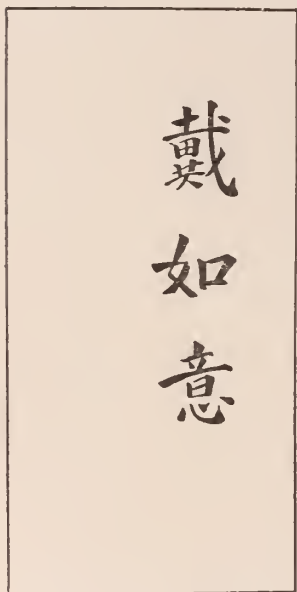 戴如意